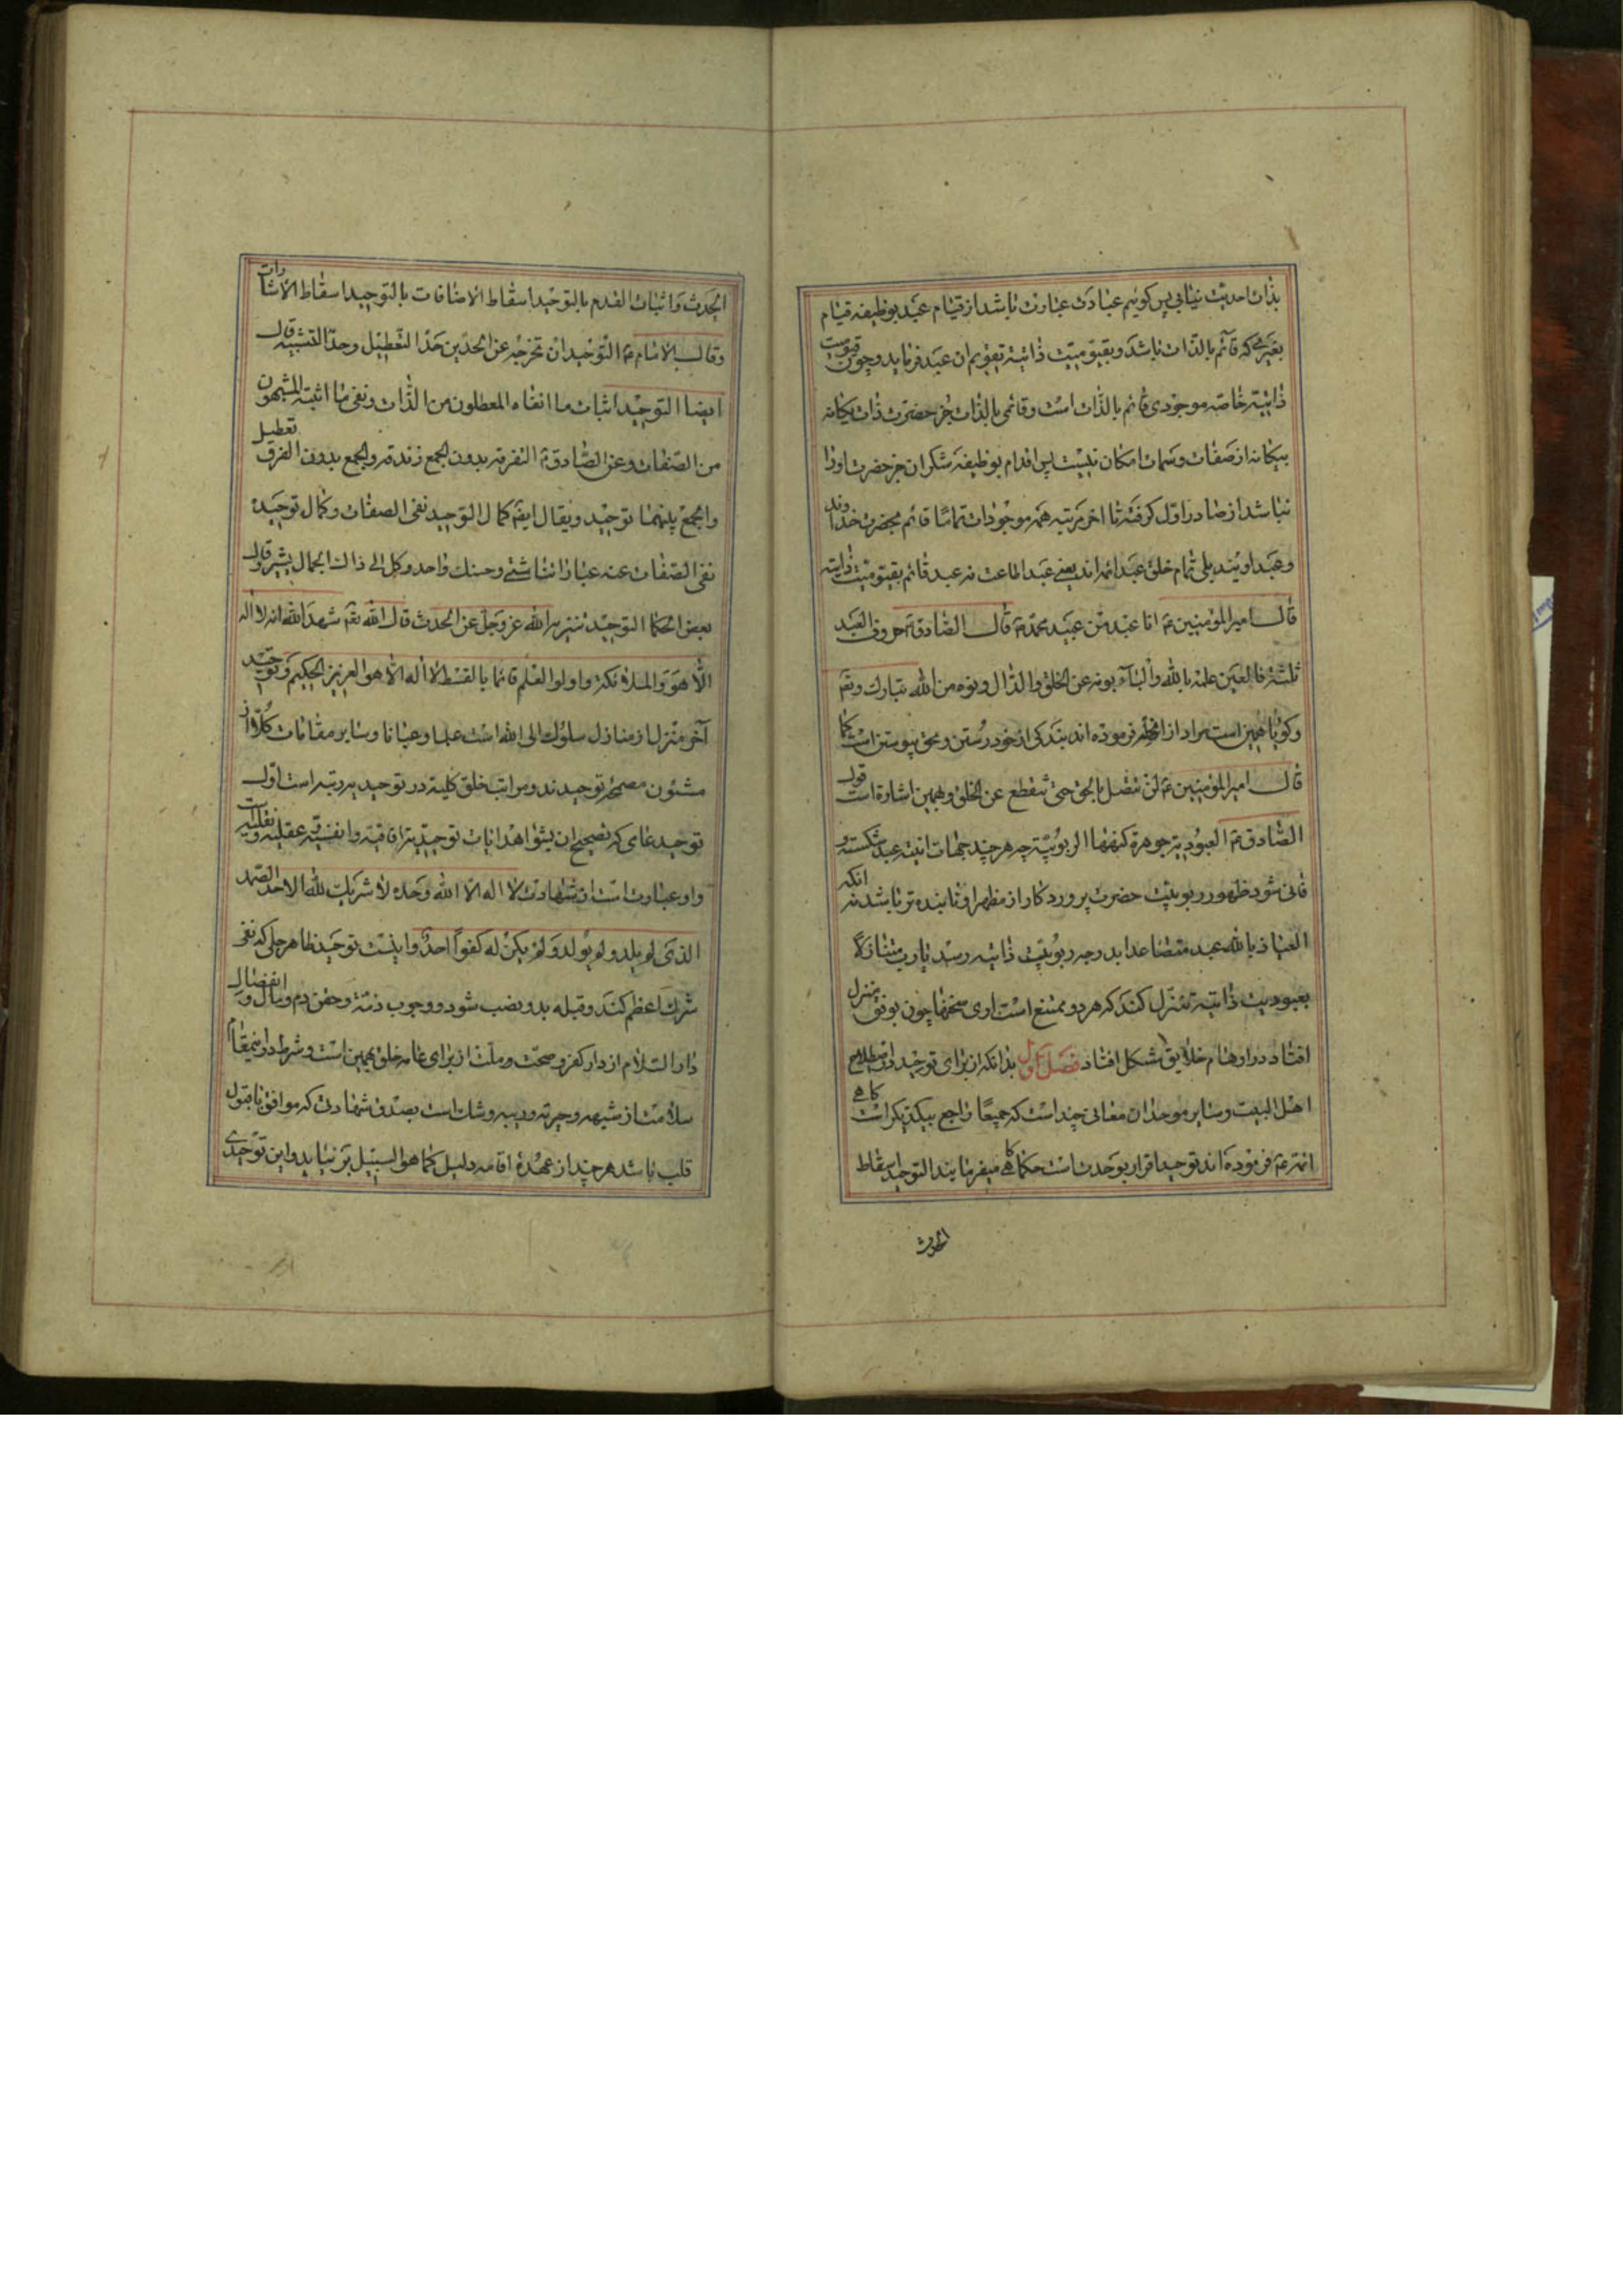 بذات احدیت نیابی پس کوئیم عبادت عبارت باشد از قیام عبد بوظیفه قیام
بغیری که قائم بالذات باشد و بقیومیت ذاتیة تقویم ان عبد فرماید و چون قیومیت
ذاتیة خاصه موجودی قائم بالذات است و قائمی بالذات جز حضرت ذات یکانه
بیکانه از صفات و سمات امکان نیست پس اقدام بوظیفه شکران جز حضرت او را
نباشد از صادر اول کرفته تا اخر مرتبه همه موجودات تماما قائم بحضرت خداوند
و عبد اویند بلی تمام خلق عبد ائمه اند یعنی عبد اطاعت نه عبد قائم بقیومیت ذاتیه
قال امیر المؤمنین ع انا عبد من عبید محمد ص قال الصادق ع حروف العبد
ثلثة فالعین علمه بالله والباء بونه عن الخلق والدال دنوه من الله تبارک وتعم
و کویا همین است مراد از انچه فرموده اند بندکی از خود رستن و بحق پیوستن است کما
قال امیر المؤمنین ع لن تتصل بالحق حتی تنقطع عن الخلق و بهمین اشارة است قول
الصادق ع العبودیة جوهرة کنهها الربوبیة چه هر چند جهات انیته عبد شکسته و
فانی شود ظهور ربوبیت حضرت پروردکار از مظهر او تابنده تر باشد نه انکه
العیاذ بالله عبد متصاعدا بدرجه ربوبیت ذاتیه رسد یا رب متنازلا
بعبودیت ذاتیة تنزل کند که هر دو ممتنع است اری سخنها چون بوفق منزل
افتاد در اوهام خلایق مشکل افتاد فصل اول بدانکه از برای توحید در اصطلاح
اهل البیت و سایر موحدان معانی چند است که جمیعا راجع بیکدیکر است کاهی
ائمه ع فرموده اند توحید اقرار بوحدت است حکما کاهی میفرمایند التوحید اسقاط
الحدث
الحدث و اثبات القدم یا التوحید اسقاط الاضافات یا التوحید اسقاط الاشارات
وقال الامام ع التوحید ان تخرجه عن الحدین حد التعطیل وحد التشبیه قال
ایضا التوحید اثبات ما انفاه المعطلون من الذات ونفی ما اثبته المشبهون
من الصفات وعن الصادق ع التفرقه بدون الجمع زندقه والجمع بدون الفرق تعطیل
والجمع بینهما توحید و یقال ایضا کمال التوحید نفی الصفات وکمال توحیده
نفی الصفات عنه عباراتنا شتی وحسنک واحد وکل الی ذاک الجمال یشیر وقال
بعض الحکما التوحید تنزیه الله عز وجل عن الحدث قال الله تعم شهد الله انه لا اله
الا هو والملائکة واولوا العلم قائما بالقسط لا اله الا هو العزیز الحکیم و توحید
آخر منزل از منازل سلوک الی الله است علما و عیانا و سایر مقامات کلا از
مشئون مصححه توحیدند و مراتب خلق کلیة در توحید بر دو مرتبه است اول
توحید عامی که تصحیح ان بشواهد ایات توحیدیه افاقیه و انفسیه عقلیه و نقلیه است
و او عبارت است از شهادت لا اله الا الله وحده لا شریک لله الاحد الصمد
الذی لم یلد ولم یولد ولم یکن له کفوا احد و اینست توحید ظاهر جلی که نفی
شرک اعظم کند و قبله بدو نصب شود و وجوب ذمة و حقن دم و مال و انفصال
دار السلام از دار کفر و صحت و ملت از برای عامه خلق بهمین است و شرط در اینمقام
سلامت از شبهه و حیرته و ریبه و شک است بصدق شهادت که موافق با قبول
قلب باشد هر چند از عهده اقامه دلیل کما هو السبیل بر نیاید و این توحیدی